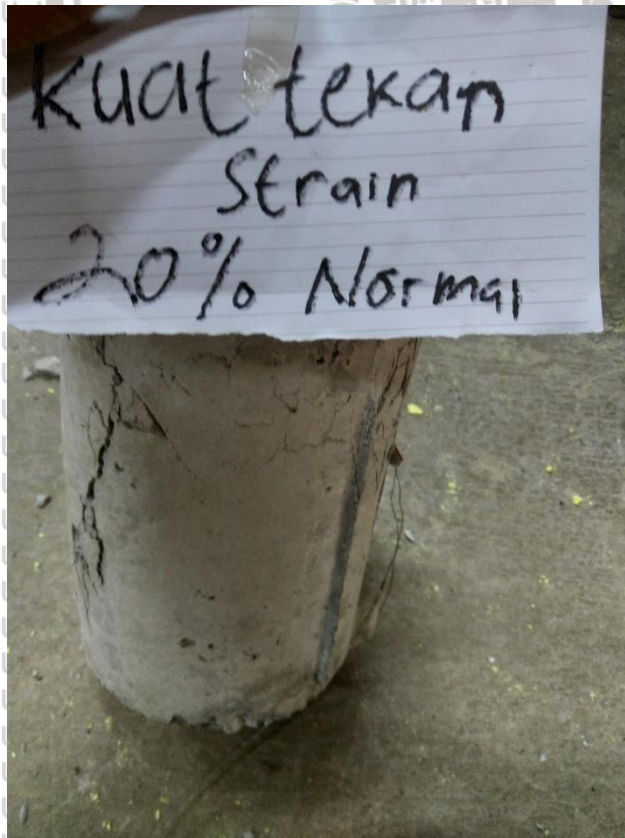 Kuat tekan
Strain
20% Normal